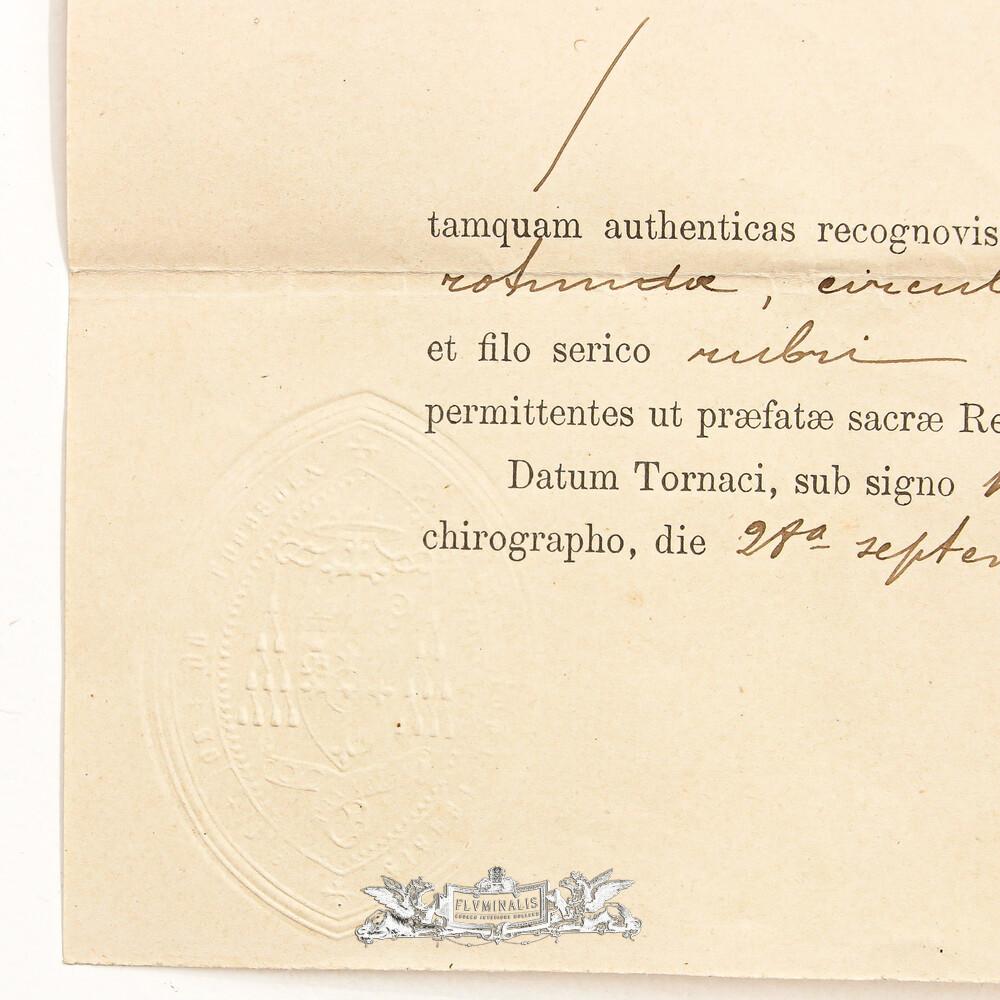 tamquam authenticas recognovis
rotundæ, circul
et filo serico rubri
permittentes ut præfatæ sacræ Re
Datum Tornaci, sub signo
chirographo, die 28ª septem
FLVMINALIS